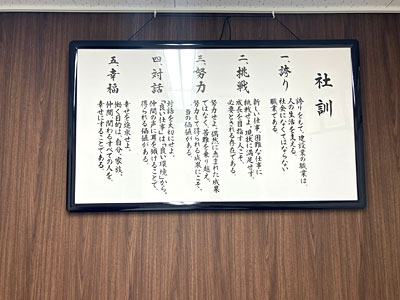 社訓
一、誇り
誇りをもて、建設業の職業は、
人の生活を支える、
社会になくてはならない
職業である。
二、挑戦
新しい仕事、困難な仕事に
挑戦せよ、現状に満足せず、
成長を目指す人こそ、
必要とされる存在である。
三、努力
努力せよ、偶然に恵まれた成果
ではなく、苦難を乗り越え、
努力して得られる成果にこそ、
当の価値がある。
四、対話
対話を大切にせよ、
「良い仕事」は「良い環境」から。
仲間の声に耳を傾けることで、
得られる価値がある。
五、幸福
幸せを追求せよ、
働く目的は、自分、家族、
仲間、関わるすべての人を、
幸せにすることである。